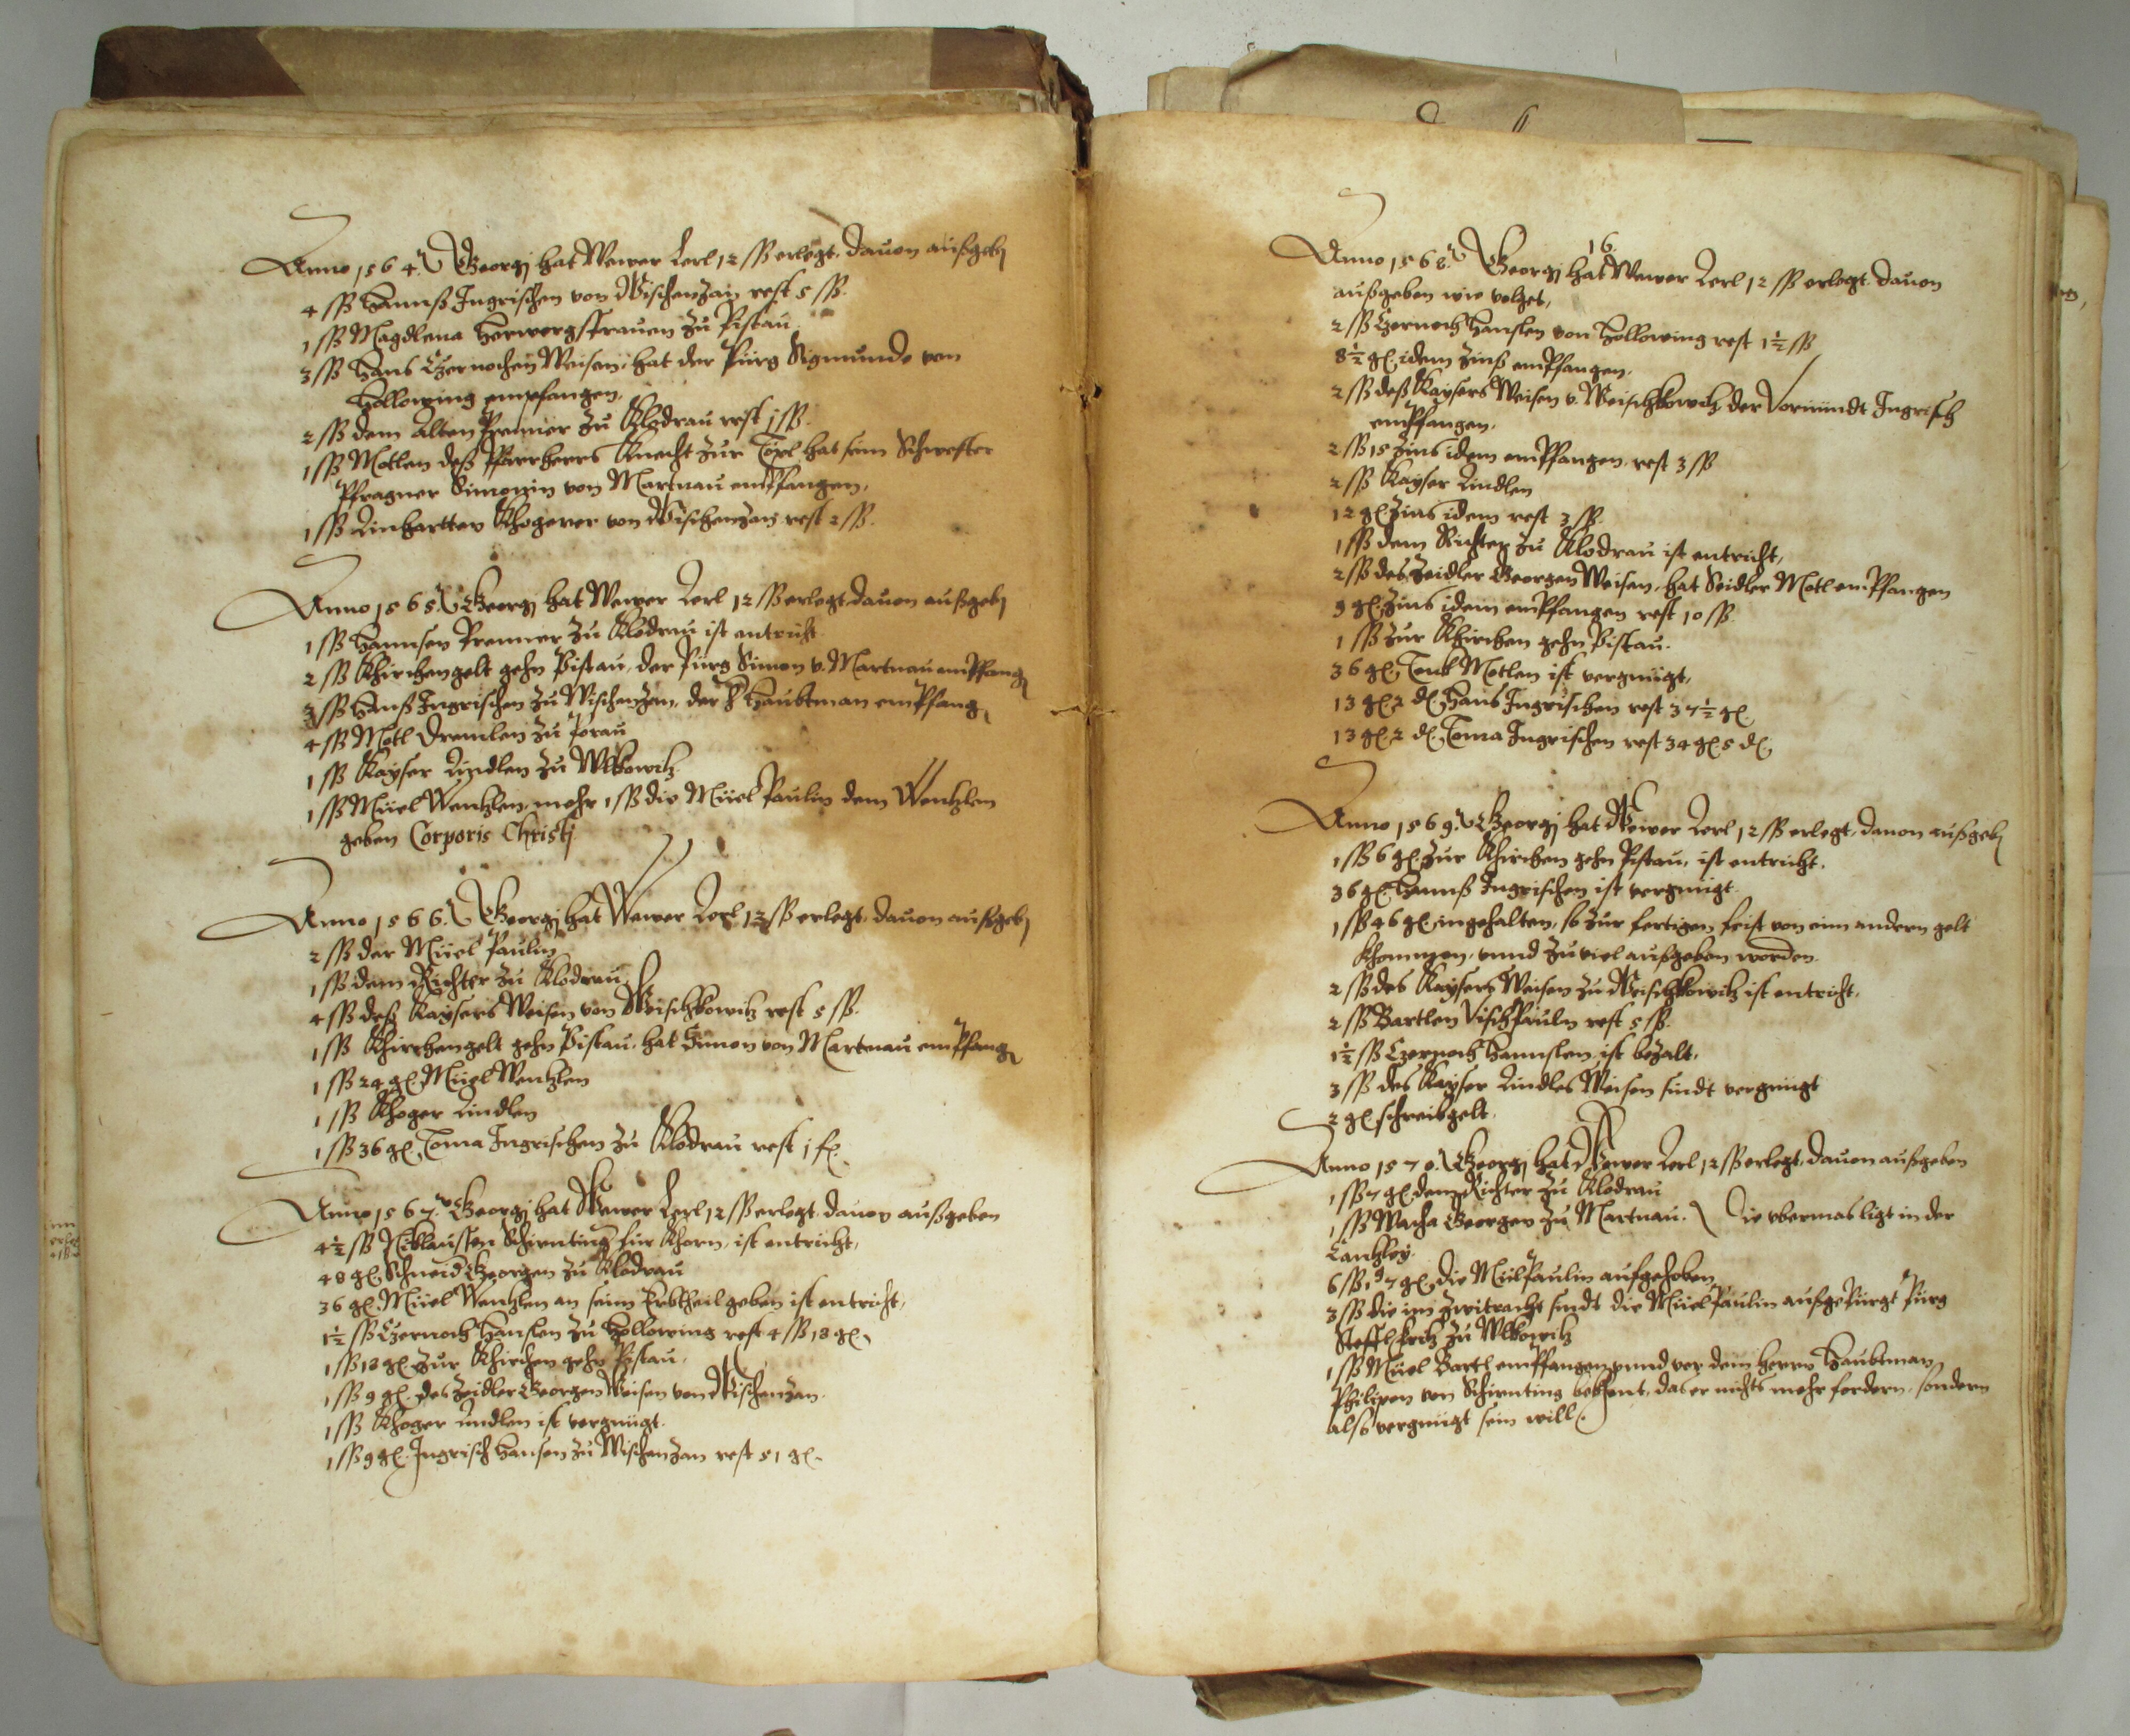 Anno 1564. Georgj hat Wewer Lerl 12 ss erlegt, dauon außgebn
4 ss Hannß Ingrischen von Wischenzan rest 5 ss.
1 ss Magdlena Herwergsfrauen zu Pistau
3 ss Hans Czernochen Weisen, hat der Pürg Sigmundt von
Hollowing empfangen,
2 ss dem Alten Premier zu Klodrau rest 1 ss.
1 ss Motlen deß Pfarrherrs Knecht zur Töpl hat sein Schwester
Pfragner Simonin von Martnau empfangen,
1 ss Linhartten Khogerer von Wischenzan rest 2 ss.
Anno 1565. Georgj hat Wewer Lerl 12 ss erlegt, dauon außgebn
1 ss Hannsen Premer zu Klodrau ist entricht
2 ss Khirchengelt gehn Pistau, der Pürg Simon v. Martnau empfangn
3 ss Hanß Ingrischen zu Wischenzan, der H Haubtman empfangn
4 ss Motl Dremlen zu Jorau
1 ss Kayser Lindlen zu Wlkowitz
1 ss Müel Wentzlen, mehr 1 ss die Müel Paulin dem Wentzlen
geben Corporis Christj
Anno 1566. Georgj hat Wewer Lerl 12 ss erlegt, dauon außgebn
2 ss der Müel Paulin
1 ss dem Richter zu Klodrau
4 ss deß Kaysers Weisen von Weischkowitz rest 5 ss.
1 ss Khirchengelt gehn Pistau, hat Simon von Martnau empfangn
1 ss 24 gl. Müel Wentzlen
1 ss Khoger Lindlen
1 ss 36 gl. Toma Ingrischen zu Klodrau rest 1 fl.
Anno 1567. Georgj hat Wewer Lerl 12 ss erlegt, dauon außgeben
4½ ss Niklaussen Schirnting für Khorn, ist entricht,
48 gl. Schneid Georgen zu Klodrau
36 gl. Müel Wentzlen an seim Erbtheil geben ist entricht,
1½ ss Czernoch Hanslen zu Hollowing rest 4 ss 18 gl.
1 ss 18 gl. zur Khirchen gehn Pistau,
1 ss 9 gl. des Zeidler Georgen Weisen von Wischenzan.
1 ss Khoger Lindlen ist vergnügt.
1 ss 9 gl. Ingrisch Hansen zu Wischenzan rest 51 gl.
16.
Anno 1568. Georgj hat Wewer Lerl 12 ss erlegt. dauon
außgeben wie volget,
2 ss Czernoch Hanslen von Hollowing rest 1½ ss
8½ gl. idem Zinß empfangen.
2 ss deß Kaysers Weisen v. Weischkowitz der Vormündt Ingrisch
empfangen.
2 ss 15 Zins idem empfangen, rest 3 ss
2 ss Kayser Lindlen
12 gl. Zins idem rest 3 ss.
1 ss dem Richter zu Klodrau ist entricht,
2 ss des Zeidler Georgen Weisen, hat Seidler Motl empfangen
9 gl. Zins idem empfangen rest 10 ss.
1 ss zur Khirchen gehn Pistau.
36 gl. Motlen ist vergnügt,
13 gl. 2 d. Hans Ingrischen rest 37½ gl.
13 gl. 2 d. Toma Ingrischen rest 34 gl. 5 d.
Anno 1569. Georgj hat Wewer Lerl 12 ss erlegt, dauon außgebn
1 ss 6 gl. zur Khirchen gehn Pistau, ist entricht,
36 gl. Hannß Ingrischen ist vergnügt.
1 ss 46 gl. ingehalten, so zur fertigen frist von eim andern gelt
khommen, vnnd zuviel außgeben worden.
2 ss des Kaysers Weisen zu Weischkowitz ist entricht,
2 ss Bartlen Vischpauln rest 5 ss.
1½ ss Czernoch Hannslen ist bezalt,
3 ss des Kayser Lindles Weisen sindt vergnügt
2 gl. schreibgelt.
Anno 1570. Georgj hat Wewer Lerl 12 ss erlegt, dauon außgeben
1 ss 7 gl. dem Richter zu Klodrau
1 ss Macha Georgen zu Martnau. Die vbermas ligt in der
Cantzley.
6 ss 7 gl. die Mülpaulin aufgehoben
3 ss die im Zwitracht sindt die Müelpaulin außgepürgt Pürg
Steffl zu Wlkowitz
1 ss Müel Bartl empfangen, vnnd vor dem herrn Haubtman
Philippen von Schirnting bekhent, das er nichts mehr fordern, sondern
alß vergnügt sein will.